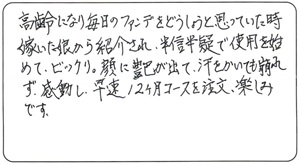 高齢になり毎日のファンデをどうしようと思っていた時
嫁いた娘から紹介され、半信半疑で使用を始
めて、ビックリ。顔に艶が出て、汗をかいても崩れ
ず、感動し、早速12ヶ月コースを注文、楽しみ
です。